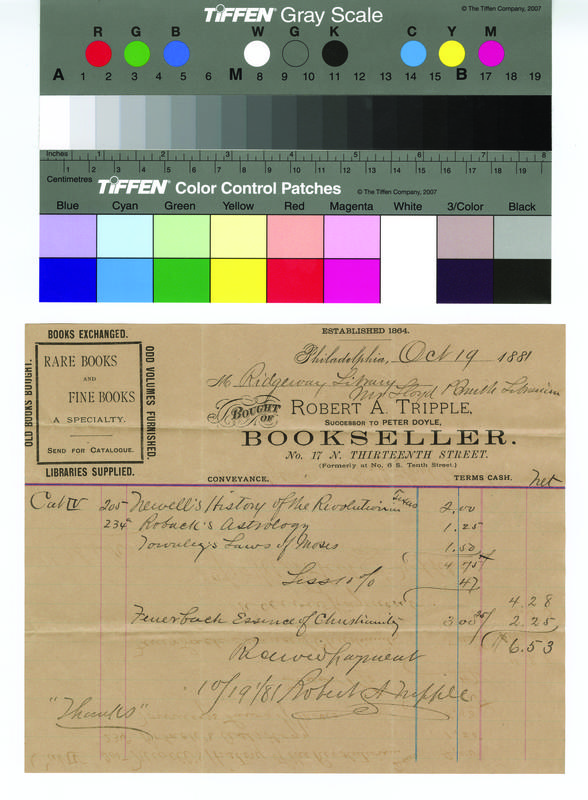 TIFFEN Gray Scale
© The Tiffen Company, 2007
R G B W G K C Y M
A 1 2 3 4 5 6 M 8 9 10 11 12 13 14 15 B 17 18 19
Inches 1 2 3 4 5 6 7 8
Centimetres 1 2 3 4 5 6 7 8 9 10 11 12 13 14 15 16 17 18 19
TIFFEN Color Control Patches
© The Tiffen Company, 2007
Blue Cyan Green Yellow Red Magenta White 3/Color Black
BOOKS EXCHANGED.
OLD BOOKS BOUGHT.
ODD VOLUMES FURNISHED.
LIBRARIES SUPPLIED.
RARE BOOKS
AND
FINE BOOKS
A SPECIALTY.
SEND FOR CATALOGUE.
ESTABLISHED 1864.
Philadelphia, Oct 19 1881
M Ridgeway Library
Mr Lloyd P Smith Librarian
BOUGHT OF
ROBERT A. TRIPPLE,
SUCCESSOR TO PETER DOYLE,
BOOKSELLER.
No. 17 N. THIRTEENTH STREET.
(Formerly at No. 6 S. Tenth Street.)
CONVEYANCE.
TERMS CASH. Net
Cat IV 205 Newell's History of the Revolution in Texas 2.00
234 Roback's Astrology 1.25
Townley's Laws of Moses 1.50
4 75
Less 10 % 47
4.28
Feuerbach Essence of Christianity 3 00 25/ 2.25
$6.53
Received payment
10/19/81 Robert A Tripple
"Thanks"